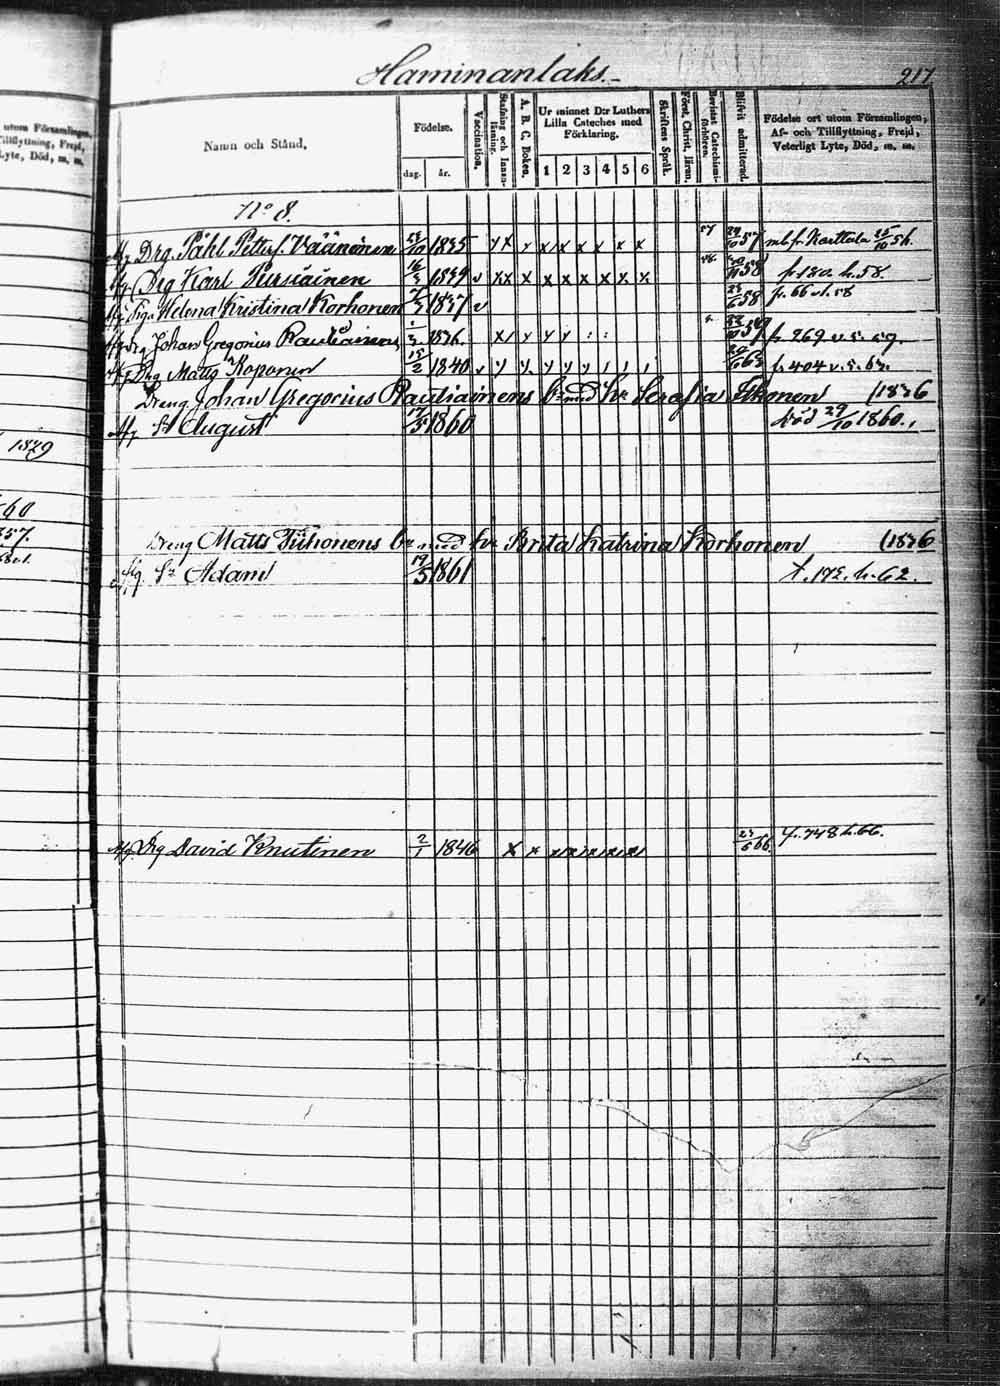 Haminanlaks.
217
utom Församlingen,
Tillflyttning, Frejd,
Lyte, Död, m. m.
Namn och Stånd,
Födelse.
dag. år.
Vaccination.
Stafning och Innan-
läsning.
A. B. C. Boken.
Ur minnet D:r Luthers
Lilla Cateches med
Förklaring.
1 2 3 4 5 6
Skriftens Språk.
Först. Christ. läran.
Bevistat Catechismi-
förhören.
Blifvit admitterad.
Födelse ort utom Församlingen,
Af- och Tillflyttning, Frejd,
Veterligt Lyte, Död, m. m.
No 8.
Drg. Påhl Petters. Väänänen 1835 x x x x x x 57
Drg Karl Pursiainen 16/3 1839 v x x x x x x x x 58 fr 180. h. 58.
Helena Kristina Korhonen 1837 v 58 fr. 66
Johan Gregorius Rautiainen 1836. fr. 269 v. s. 59.
Drg Matts Koponen 15/2 1840 v fr 404 v. s. 63.
Dreng Johan Gregorius Rautiainens med hu Serafia Itkonen (1836
Sn August 1860 död 29/10 1860.
1879
60
357.
Dreng Matts Tiihonens med hu Brita Katrina Korhonen (1836
Sn Adam 19/5 1861 t. 172. h. 62.
Drg David Knutinen 2/1 1846 x x 66. fr. 748 h. 66.